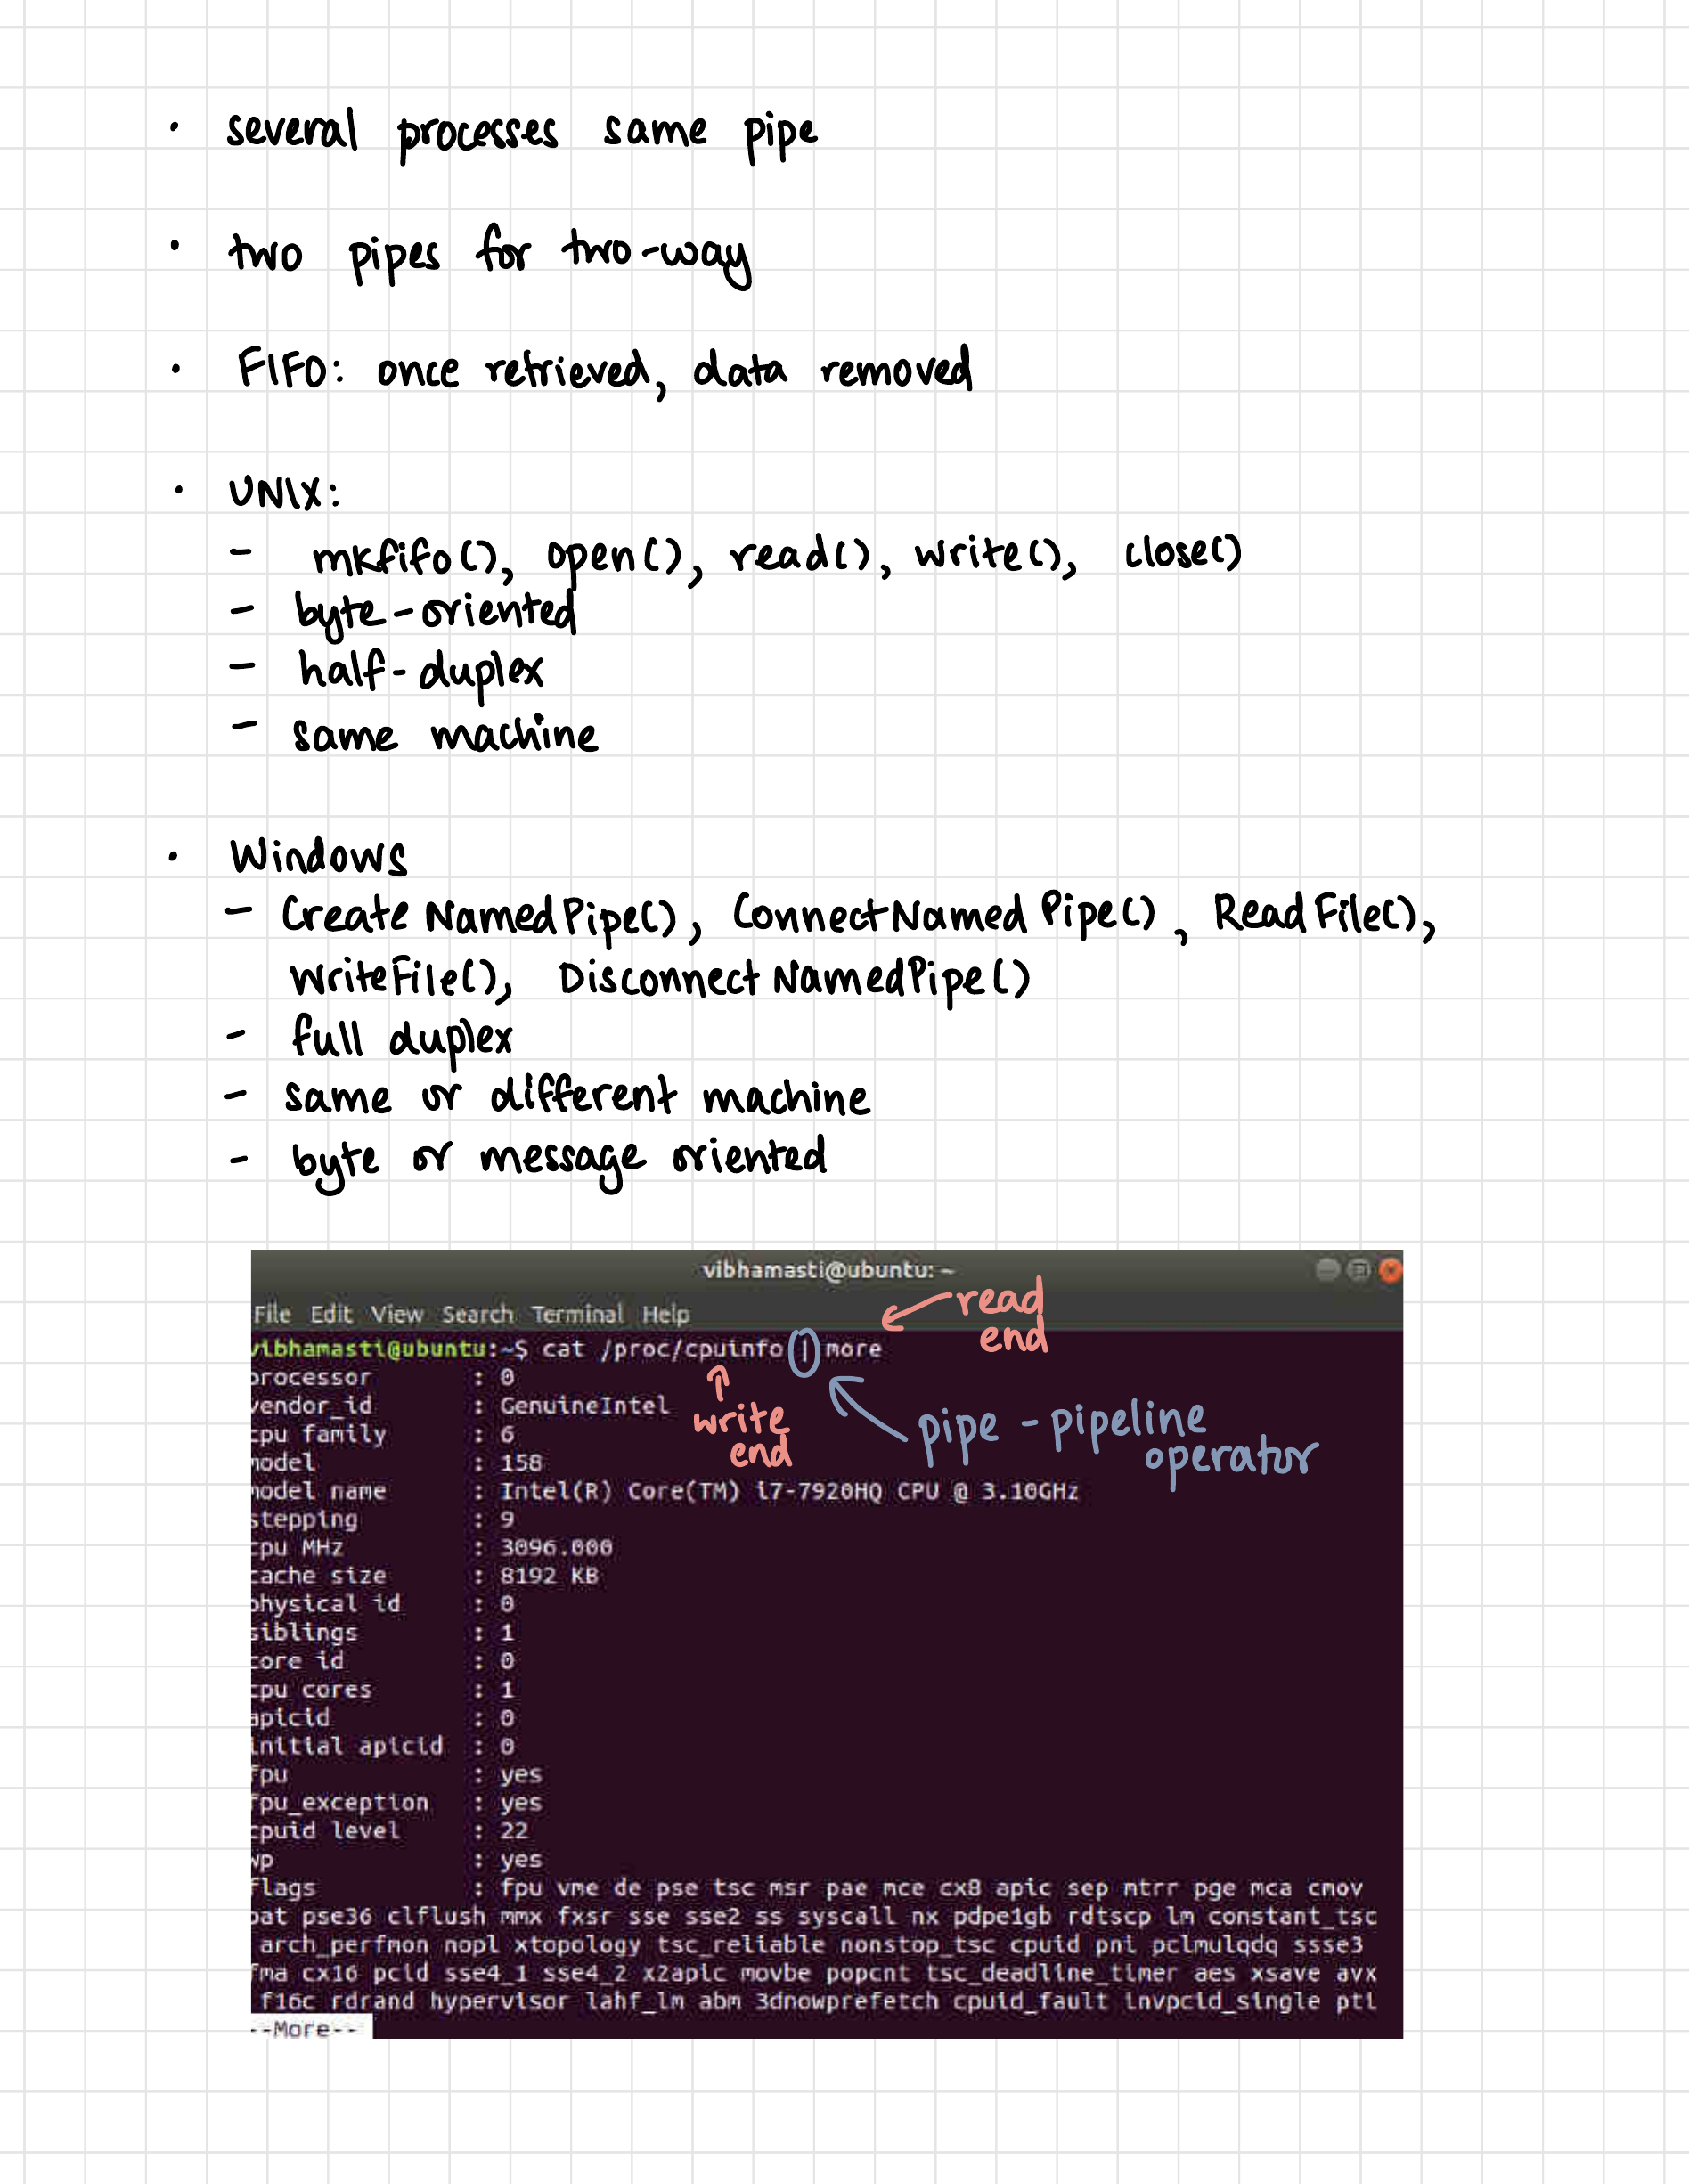 · several processes same pipe
· two pipes for two-way
· FIFO: once retrieved, data removed
· UNIX:
- mkfifo(), open(), read(), write(), close()
- byte-oriented
- half-duplex
- same machine
· Windows
- CreateNamedPipe(), ConnectNamedPipe(), ReadFile(),
WriteFile(), DisconnectNamedPipe()
- full duplex
- same or different machine
- byte or message oriented
vibhamasti@ubuntu: ~
File Edit View Search Terminal Help
read
end
vibhamasti@ubuntu:~$ cat /proc/cpuinfo | more
write
end
pipe - pipeline
operator
processor : 0
vendor_id : GenuineIntel
cpu family : 6
model : 158
model name : Intel(R) Core(TM) i7-7920HQ CPU @ 3.10GHz
stepping : 9
cpu MHz : 3096.000
cache size : 8192 KB
physical id : 0
siblings : 1
core id : 0
cpu cores : 1
apicid : 0
initial apicid : 0
fpu : yes
fpu_exception : yes
cpuid level : 22
wp : yes
flags : fpu vme de pse tsc msr pae mce cx8 apic sep mtrr pge mca cmov
pat pse36 clflush mmx fxsr sse sse2 ss syscall nx pdpe1gb rdtscp lm constant_tsc
arch_perfmon nopl xtopology tsc_reliable nonstop_tsc cpuid pni pclmulqdq ssse3
fma cx16 pcid sse4_1 sse4_2 x2apic movbe popcnt tsc_deadline_timer aes xsave avx
f16c rdrand hypervisor lahf_lm abm 3dnowprefetch cpuid_fault invpcid_single pti
--More--